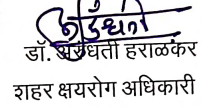 डॉ. अरुंधती हराळकर
शहर क्षयरोग अधिकारी